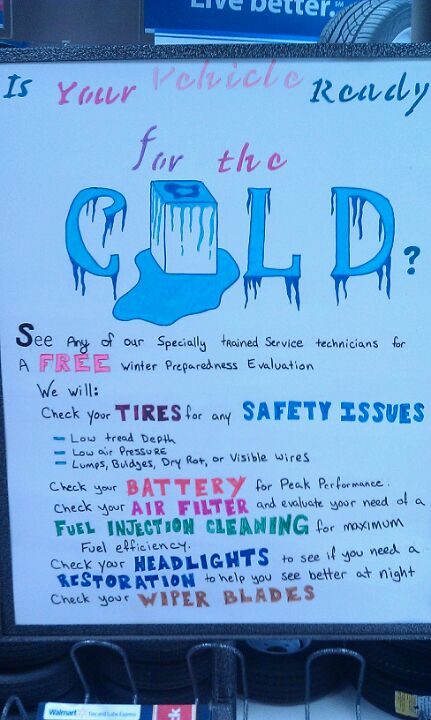 Live better.
Is Your Vehicle Ready
for the
COLD?
See Any of our Specially trained Service technicians for
A FREE winter Preparedness Evaluation
We will:
Check your TIRES for any SAFETY ISSUES
- Low tread Depth
- Low air Pressure
- Lumps, Buldges, Dry Rot, or Visible wires
Check your BATTERY for Peak Performance.
Check your AIR FILTER and evaluate your need of a
FUEL INJECTION CLEANING for maximum
Fuel efficiency.
Check your HEADLIGHTS to see if you need a
RESTORATION to help you see better at night
Check your WIPER BLADES
Walmart Tire and Lube Express